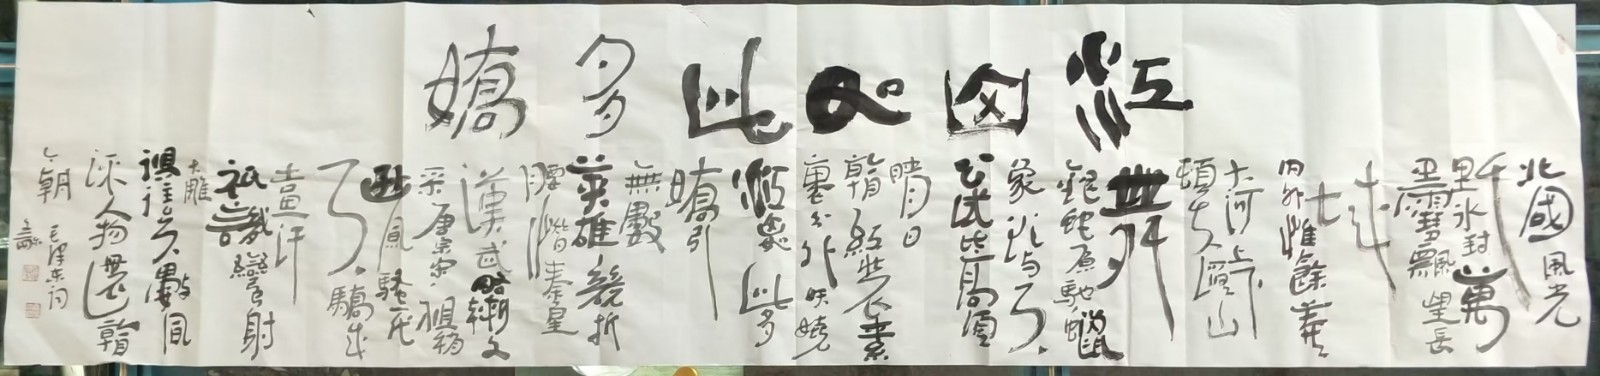 江山如此多嬌
北國風光
千里冰封萬
里雪飄望長
城
內外惟餘莽莽
大河上下
頓失滔滔山
舞
銀蛇原馳蠟
象欲與天
公試比高須
晴日
看紅裝素
裹分外妖嬈
江山如此多
嬌引
無數
英雄競折
腰惜秦皇
漢武略輸文
采唐宗宋祖稍
遜風騷一代
天驕成
吉思汗
祇識彎弓射
大雕
俱往矣數風
流人物還看
今朝
毛澤東詞